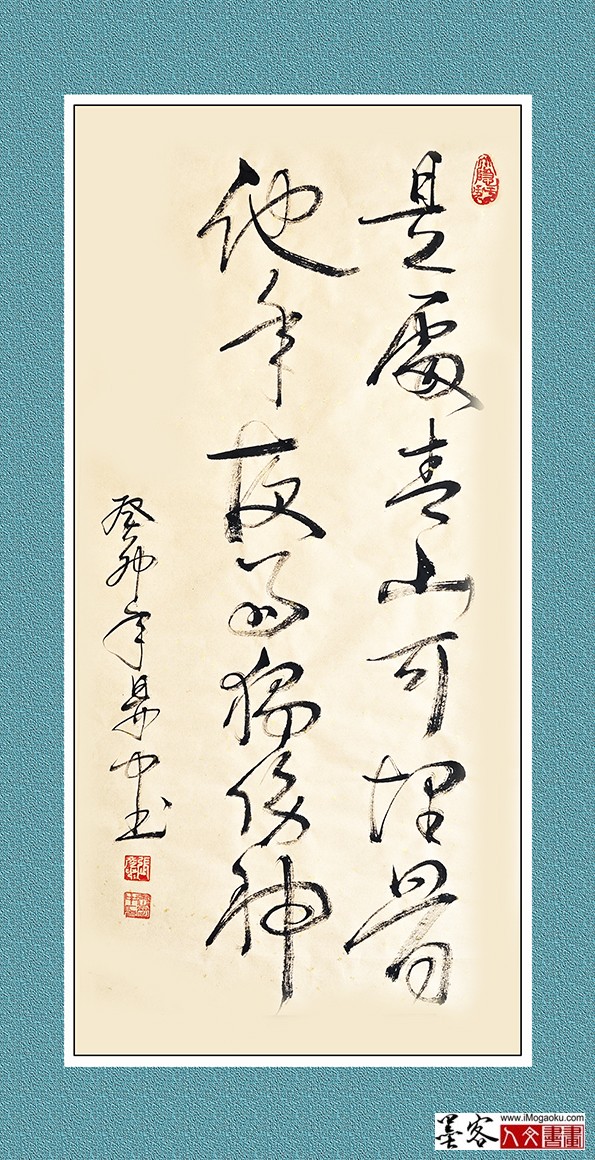 是處青山可埋骨
他年夜雨獨傷神
癸卯年
墨客
www.iMogaoku.com
人文書畫